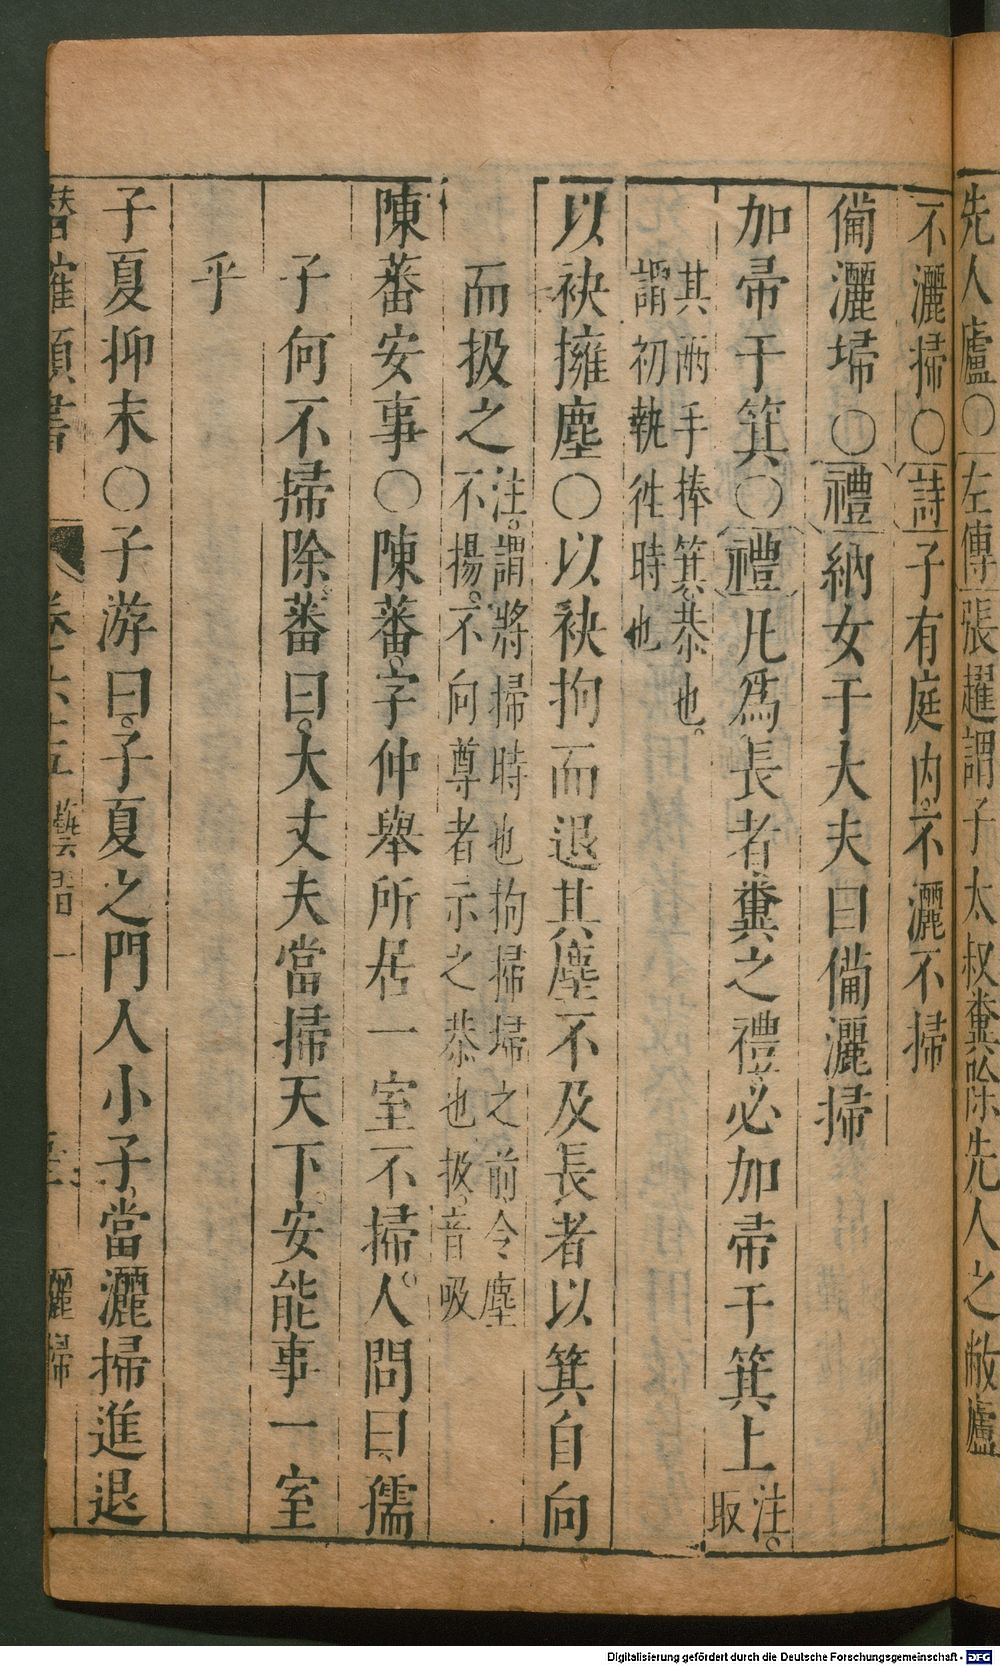 先人廬○左傳張趯謂子太叔糞除先人之敝廬
不灑掃○詩子有庭內不灑不掃
備灑埽○禮納女于大夫曰備灑掃
加帚于箕○禮凡爲長者糞之禮必加帚于箕上注取
其兩手捧箕恭也
謂初執徃時也
以袂擁塵○以袂拘而退其塵不及長者以箕自向
而扱之注謂將掃時也拘掃埽之前令塵
不揚不向尊者示之恭也扱音吸
陳蕃安事○陳蕃字仲舉所居一室不掃人問曰儒
子何不掃除蕃曰大丈夫當掃天下安能事一室
乎
子夏抑末○子游曰子夏之門人小子當灑掃進退
類書 卷六十五 藝習一 灑掃
Digitalisierung gefördert durch die Deutsche Forschungsgemeinschaft - DFG